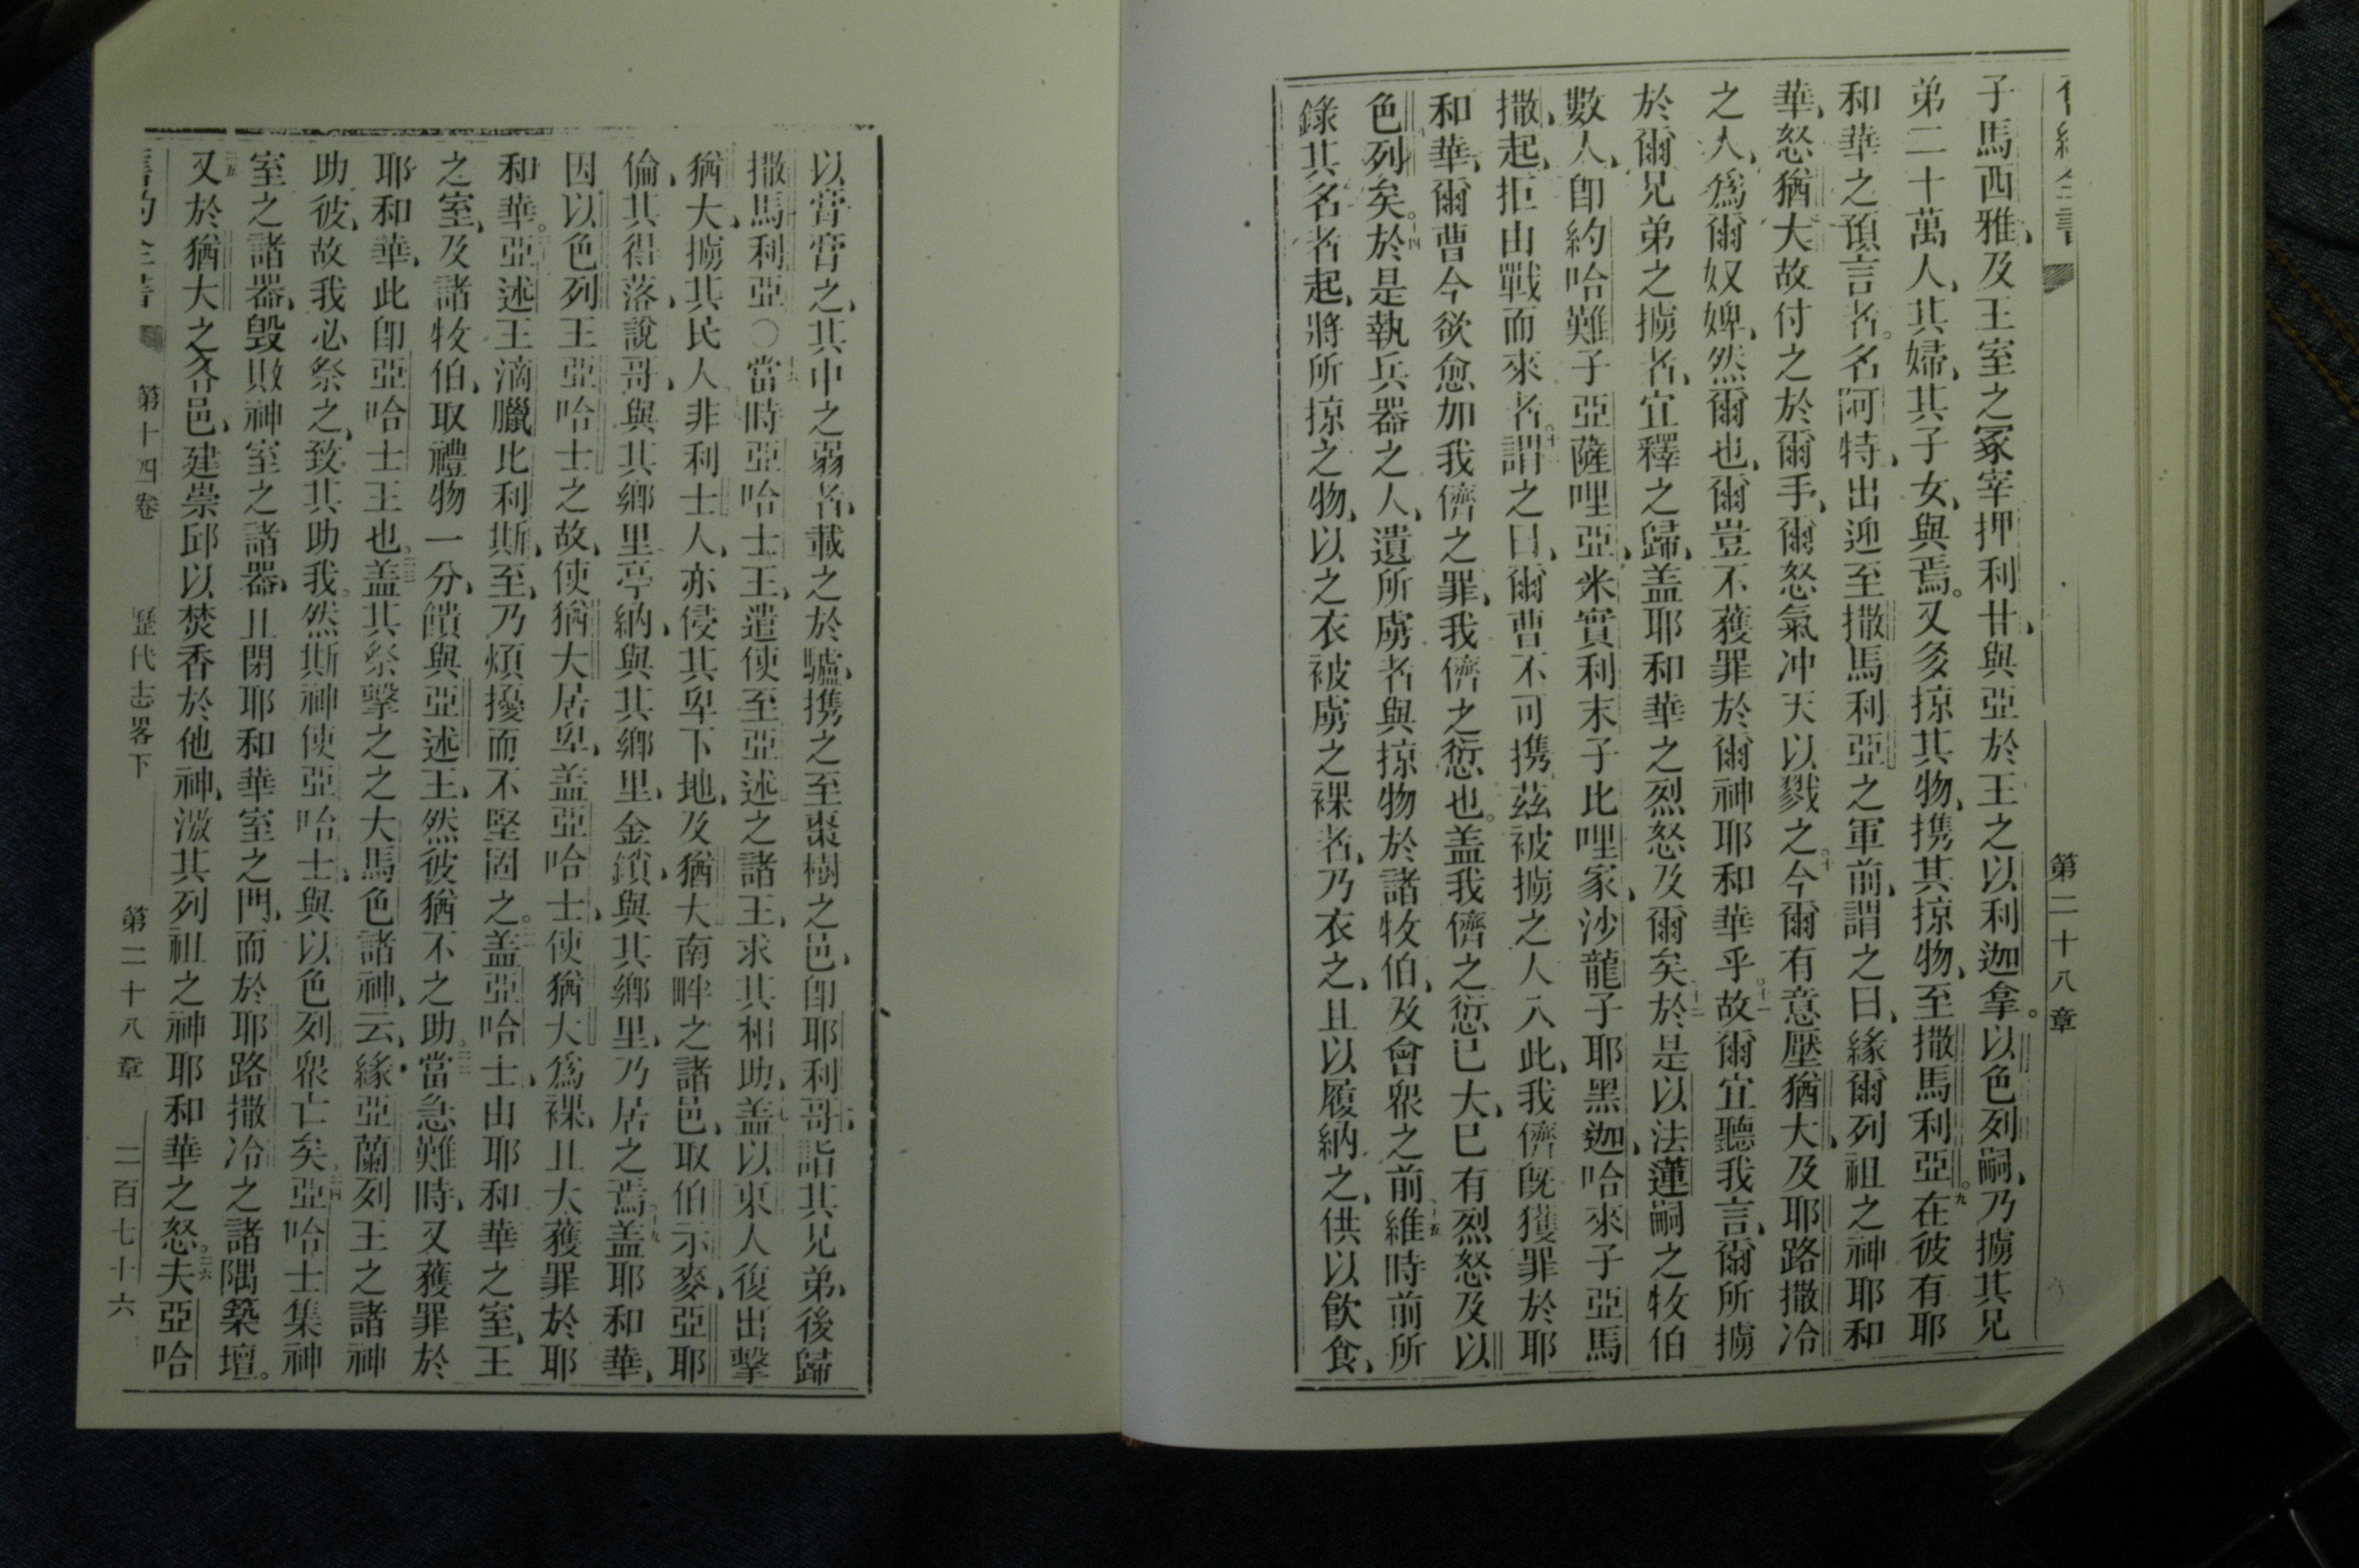 第二十八章
子馬西雅、及王室之冢宰押利甘、與亞於王之以利迦拿。以色列嗣、乃擄其兄
弟二十萬人、其婦、其子女、與焉。又多掠其物、携其掠物、至撒馬利亞。九在彼有耶
和華之預言者。名阿特、出迎至撒馬利亞之軍前、謂之曰、緣爾列祖之神耶和
華、怒猶大故付之於爾手、爾怒氣冲天以戮之。十今爾有意壓猶大、及耶路撒冷
之人、爲爾奴婢、然爾也、爾豈不獲罪於爾神耶和華乎。十一故爾宜聽我言、爾所擄
於爾兄弟之擄者、宜釋之歸、盖耶和華之烈怒及爾矣。十二於是以法蓮嗣之牧伯
數人、卽約哈難子亞薩哩亞、米實利末子比哩家、沙龍子耶黑迦、哈來子亞馬
撒、起、拒由戰而來者。十三謂之曰、爾曹不可携茲被擄之人入此、我儕旣獲罪於耶
和華、爾曹今欲愈加我儕之罪、我儕之愆也。盖我儕之愆已大、已有烈怒及以
色列矣。十四於是執兵器之人、遺所虜者與掠物於諸牧伯、及會衆之前十五維時前所
錄其名者起、將所掠之物、以之衣被虜之裸者、乃衣之、且以履納之、供以飮食、
以膏膏之、其中之弱者、載之於驢、携之至棗樹之邑、卽耶利哥、詣其兄弟、後歸
撒馬利亞○十六當時亞哈士王、遣使至亞述之諸王、求其相助、十七盖以東人復出擊
猶大、擄其民人。十八非利士人、亦侵其卑下地、及猶大南畔之諸邑、取伯示麥、亞耶
倫、其得落、說哥、與其鄉里、亭納、與其鄉里、金鎖、與其鄉里、乃居之焉。十九盖耶和華、
因以色列王亞哈士之故、使猶大居卑、盖亞哈士、使猶大爲裸、且大獲罪於耶
和華。二十亞述王滴臘比利斯、至、乃煩擾而不堅固之。二一盖亞哈士、由耶和華之室、王
之室、及諸牧伯、取禮物一分、饋與亞述王、然彼猶不之助。二二當急難時、又獲罪於
耶和華、此卽亞哈士王也。二三盖其祭擊之之大馬色諸神、云、緣亞蘭列王之諸神
助彼、故我必祭之、致其助我。然斯神使亞哈士、與以色列衆亡矣。二四亞哈士集神
室之諸器、毁敗神室之諸器、且閉耶和華室之門、而於耶路撒冷之諸隅築壇。
二五又於猶大之各邑、建崇邱以焚香於他神、激其列祖之神耶和華之怒。二六夫亞哈
第十四卷 歷代志畧下 第二十八章 二百七十六